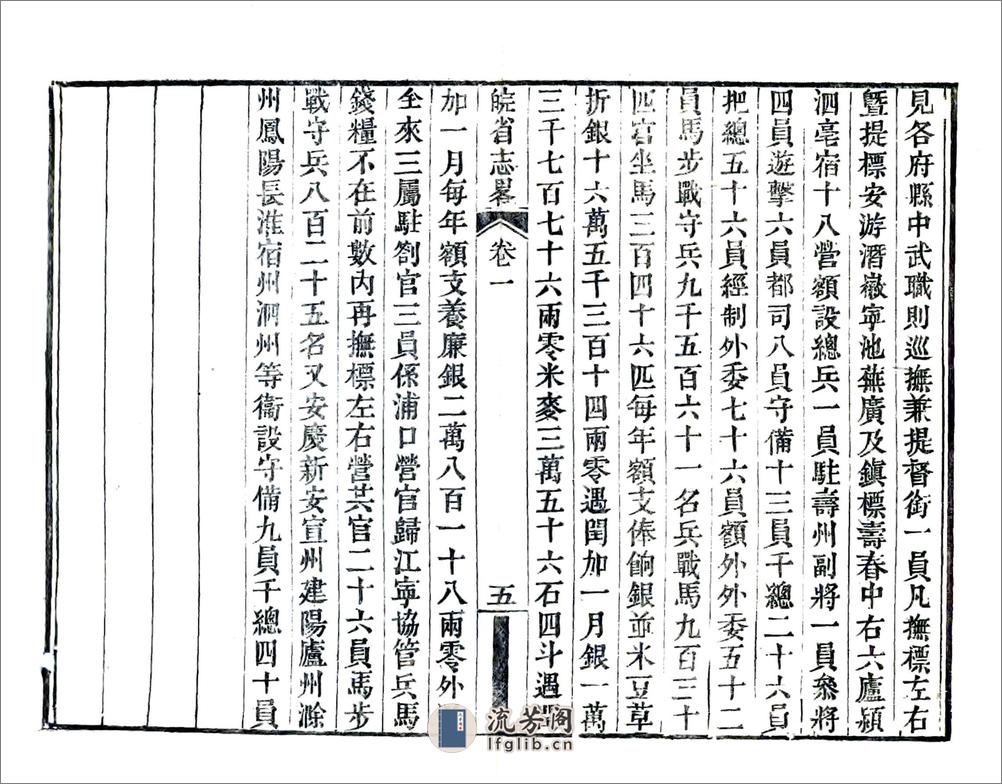 見各府縣中武職則巡撫兼提督銜一員凡撫標左右
曁提標安游潛徽寧池蕪廣及鎭標壽春中右六廬潁
泗亳宿十八營額設總兵一員駐壽州副將一員叅將
四員遊擊六員都司八員守備十三員千總二十六員
把總五十六員經制外委七十六員額外外委五十二
員馬步戰守兵九千五百六十一名兵戰馬九百三十
匹官坐馬三百四十六匹每年額支俸餉銀並米豆草
折銀十六萬五千三百十四兩零遇閏加一月銀一萬
三千七百七十六兩零米麥三萬五十六石四斗遇閏
皖省志畧 卷一 五
加一月每年額支養廉銀二萬八百一十八兩零外
全來三屬駐劄官三員係浦口營官歸江寧協管兵馬
錢糧不在前數內再撫標左右營共官二十六員馬步
戰守兵八百二十五名又安慶新安宣州建陽廬州滁
州鳳陽長淮宿州泗州等衞設守備九員千總四十員
流芳閣
lfglib.cn